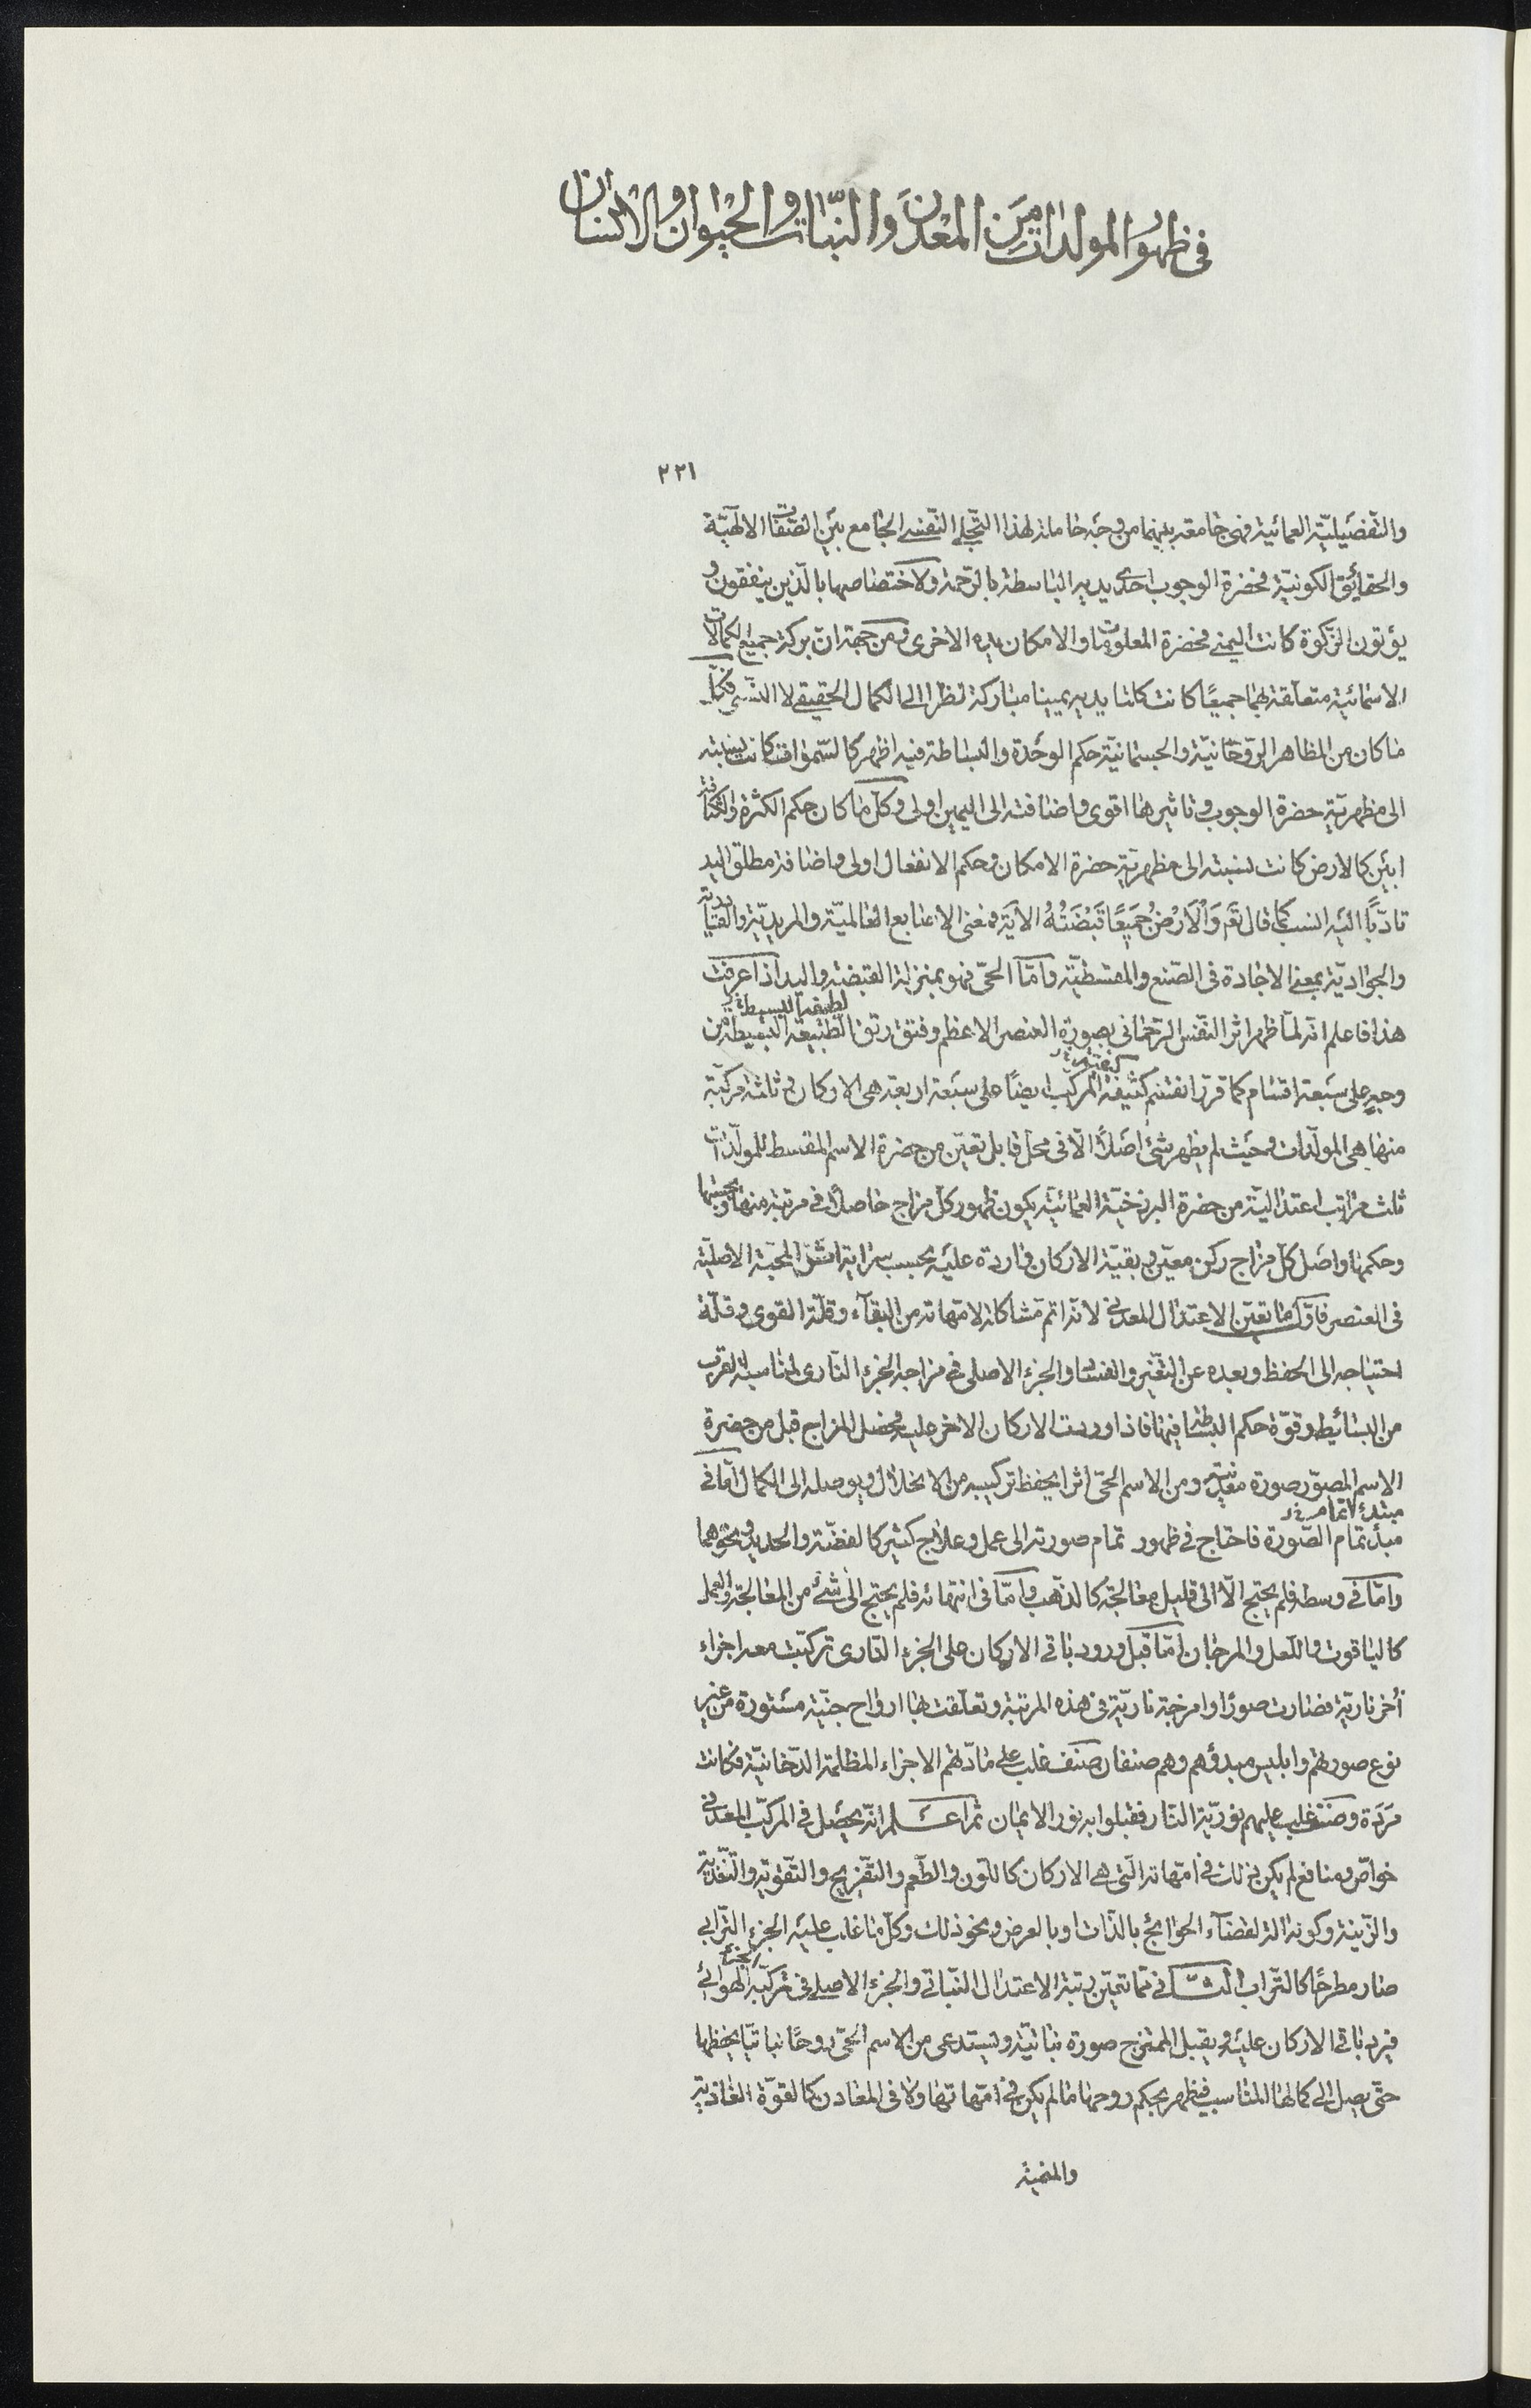 في ظهور المولدات من المعدن والنبات والحيوان والانسان
٢٢١
والتفصيليّة العمائية فهى جامعة بينهما من وجه حاملة لهذا التجلى النفسى الجامع بين الصفات الالهيّة
والحقائق الكونيّة فحضرة الوجوب احدى يديه الباسطة بالرحمة ولاختصاصها بالّذين ينفقون و
يؤتون الزكوة كانت اليمنى فحضرة المعلومات والامكان يده الاخرى ومن جهة انّ بركة جميع الكمالات
الاسمائية متعلقة بهما جميعًا كانت كلتا يديه يمينا مباركة نظرا الى الكمال الحقيقى لا النسبى فكلّ
ما كان من المظاهر الروحانيّة والجسمانيّة حكم الوحدة والبساطة فيه اظهر كالسموات كانت نسبته
الى مظهريّة حضرة الوجوب وتاثيرها اقوى واضافته الى اليمين اولى وكلّ ما كان حكم الكثرة والكثافة
ابين كالارض كانت نسبته الى مظهريّة حضرة الامكان وحكم الانفعال اولى واضافة مطلق اليد
تادّبًا اليه انسب كما قال تع وَالْاَرْضُ جَمِيعًا قَبْضَتُهُ الآية فمعنى الاصابع العالميّة والمريديّة والقادريّة
والجواديّة بمعنى الاجادة فى الصنع والمقسطيّة وامّا الحىّ فهو بمنزلة القبضة واليد اذا عرفت
لطيفها البسيطة
هذا فاعلم انّه لمّا ظهر اثر النفس الرحمانى بصورة العنصر الاعظم وفتق رتق الطبيعة البسيطة من
كثيفه
وجهٍ على سبعة اقسام كما قرّر انقسم كثيفة المركّب ايضًا على سبعة اربعة هى الاركان وثلثة مركّبة
منها هى المولّدات وحيث لم يظهر شئ اصلًا الّا فى محلّ قابل تعيّن من حضرة الاسم المقسط للمولّدات
ثلث مراتب اعتداليّة من حضرة البرزخيّة العمائيّة يكون ظهور كلّ مزاج حاصلًا فى مرتبة منها وبحسبها
وحكمها واصل كلّ مزاج ركن معيّن وبقيّة الاركان واردة عليه بحسب سراية اثر المحبّة الاصليّة
فى العنصر فاوّل ما تعيّن الاعتدال المعدنى لانّه اتم مشاكلة لامّهاته من البقاء وقلّة القوى وقلّة
احتياجه الى الحفظ وبعده عن التغيّر والفساد والجزء الاصلى فى مزاجه الجزء النارى لمناسبة القرب
من البسائط وقوّة حكم البساطة فيها فاذا وردت الاركان الاخر عليه وحصل المزاج قبل من حضرة
الاسم المصوّر صورة معدنيّة ومن الاسم الحىّ اثرا يحفظ تركيبه من الانحلال ويوصله الى الكمال امّا فى
مبتدء تمام
مبدأ تمام الصّورة فاحتاج فى ظهور تمام صورته الى عمل وعلاج كثير كالفضّة والحديد ونحوهما
وامّا فى وسطه فلم يحتج الّا الى قليل معالجة كالذهب وامّا فى انتهائه فلم يحتج الى شئ من المعالجة والعمل
كالياقوت واللعل والمرجان امّا قبل ورود باقى الاركان على الجزء النارى تركّبت معه اجزاء
أُخر ناريّة فصارت صورًا وامزجة ناريّة فى هذه المرتبة وتعلّقت بها ارواح جنّية مستورة من غير
نوع صورتهم وابليس مبدؤهم وهم صنفان صنف غلب على مادّتهم الاجزاء المظلمة الدخانيّة فكانت
مَرَدة وصنف غلب عليهم نوريّة النار فقبلوا به نور الايمان ثمّ اعلم انّه يحصل فى المركّب المعدنى
خواصّ ومنافع لم يكن ذلك فى امّهاته الّتى هى الاركان كاللون والطعم والتفريح والتقوية والتغذية
والزينة وكونه آلة لقضاء الحوائج بالذات او بالعرض ونحو ذلك وكلّ ما غلب عليه الجزء الترابى
الجزء
صار مطرحًا كالتراب الثانى ممّا تعيّن رتبة الاعتدال النباتى والجزء الاصلى فى تركّبه الهوائى
فيرد باقى الاركان عليه ويقبل الممتزج صورة نباتيّة ويستدعى من الاسم الحىّ روحًا نباتيّا يحفظها
حتّى يصل الى كمالها المناسب فيظهر بحكم روحها ما لم يكن فى امّهاتها ولا فى المعادن كالقوّة الغاذية
والمنمية